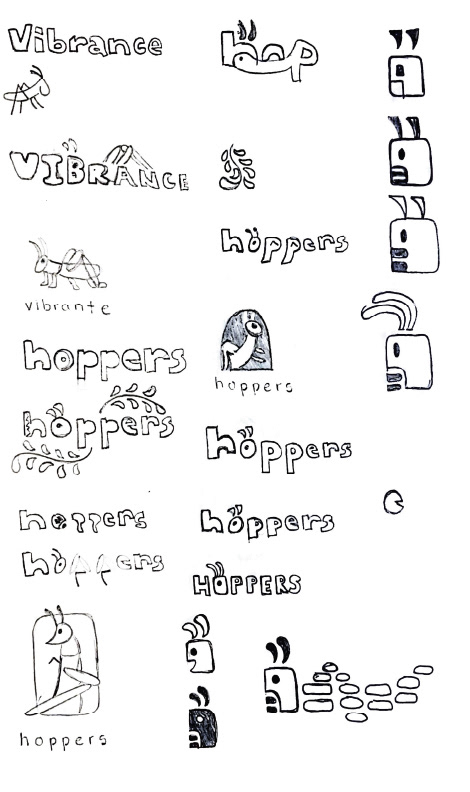 Vibrance
VIBRANCE
vibrante
hoppers
hoppers
hoppers
hoppers
hoppers
hop
hoppers
hoppers
hoppers
hoppers
HOPPERS